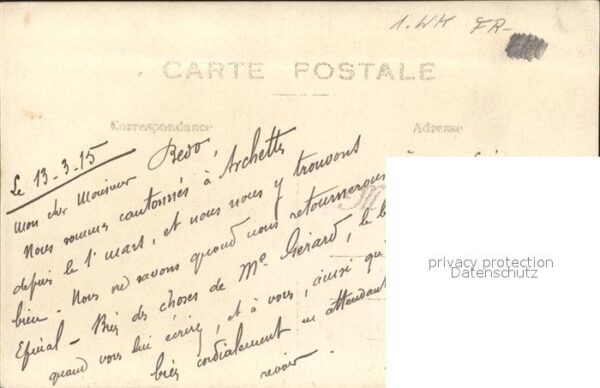 1. WK FR-
CARTE POSTALE
Correspondance
Adresse
Le 13-3-15
Mon cher Monsieur Bedo,
Nous sommes cantonnés à Archettes
depuis le 1er mars, et nous nous y trouvons
bien. Nous ne savons quand nous retournerons
Epinal - Bien des choses de Me Gérard, le
quand vous lui écrirez, et à vous, ainsi qu
bien cordialement en attendant
revoir.
privacy protection
Datenschutz